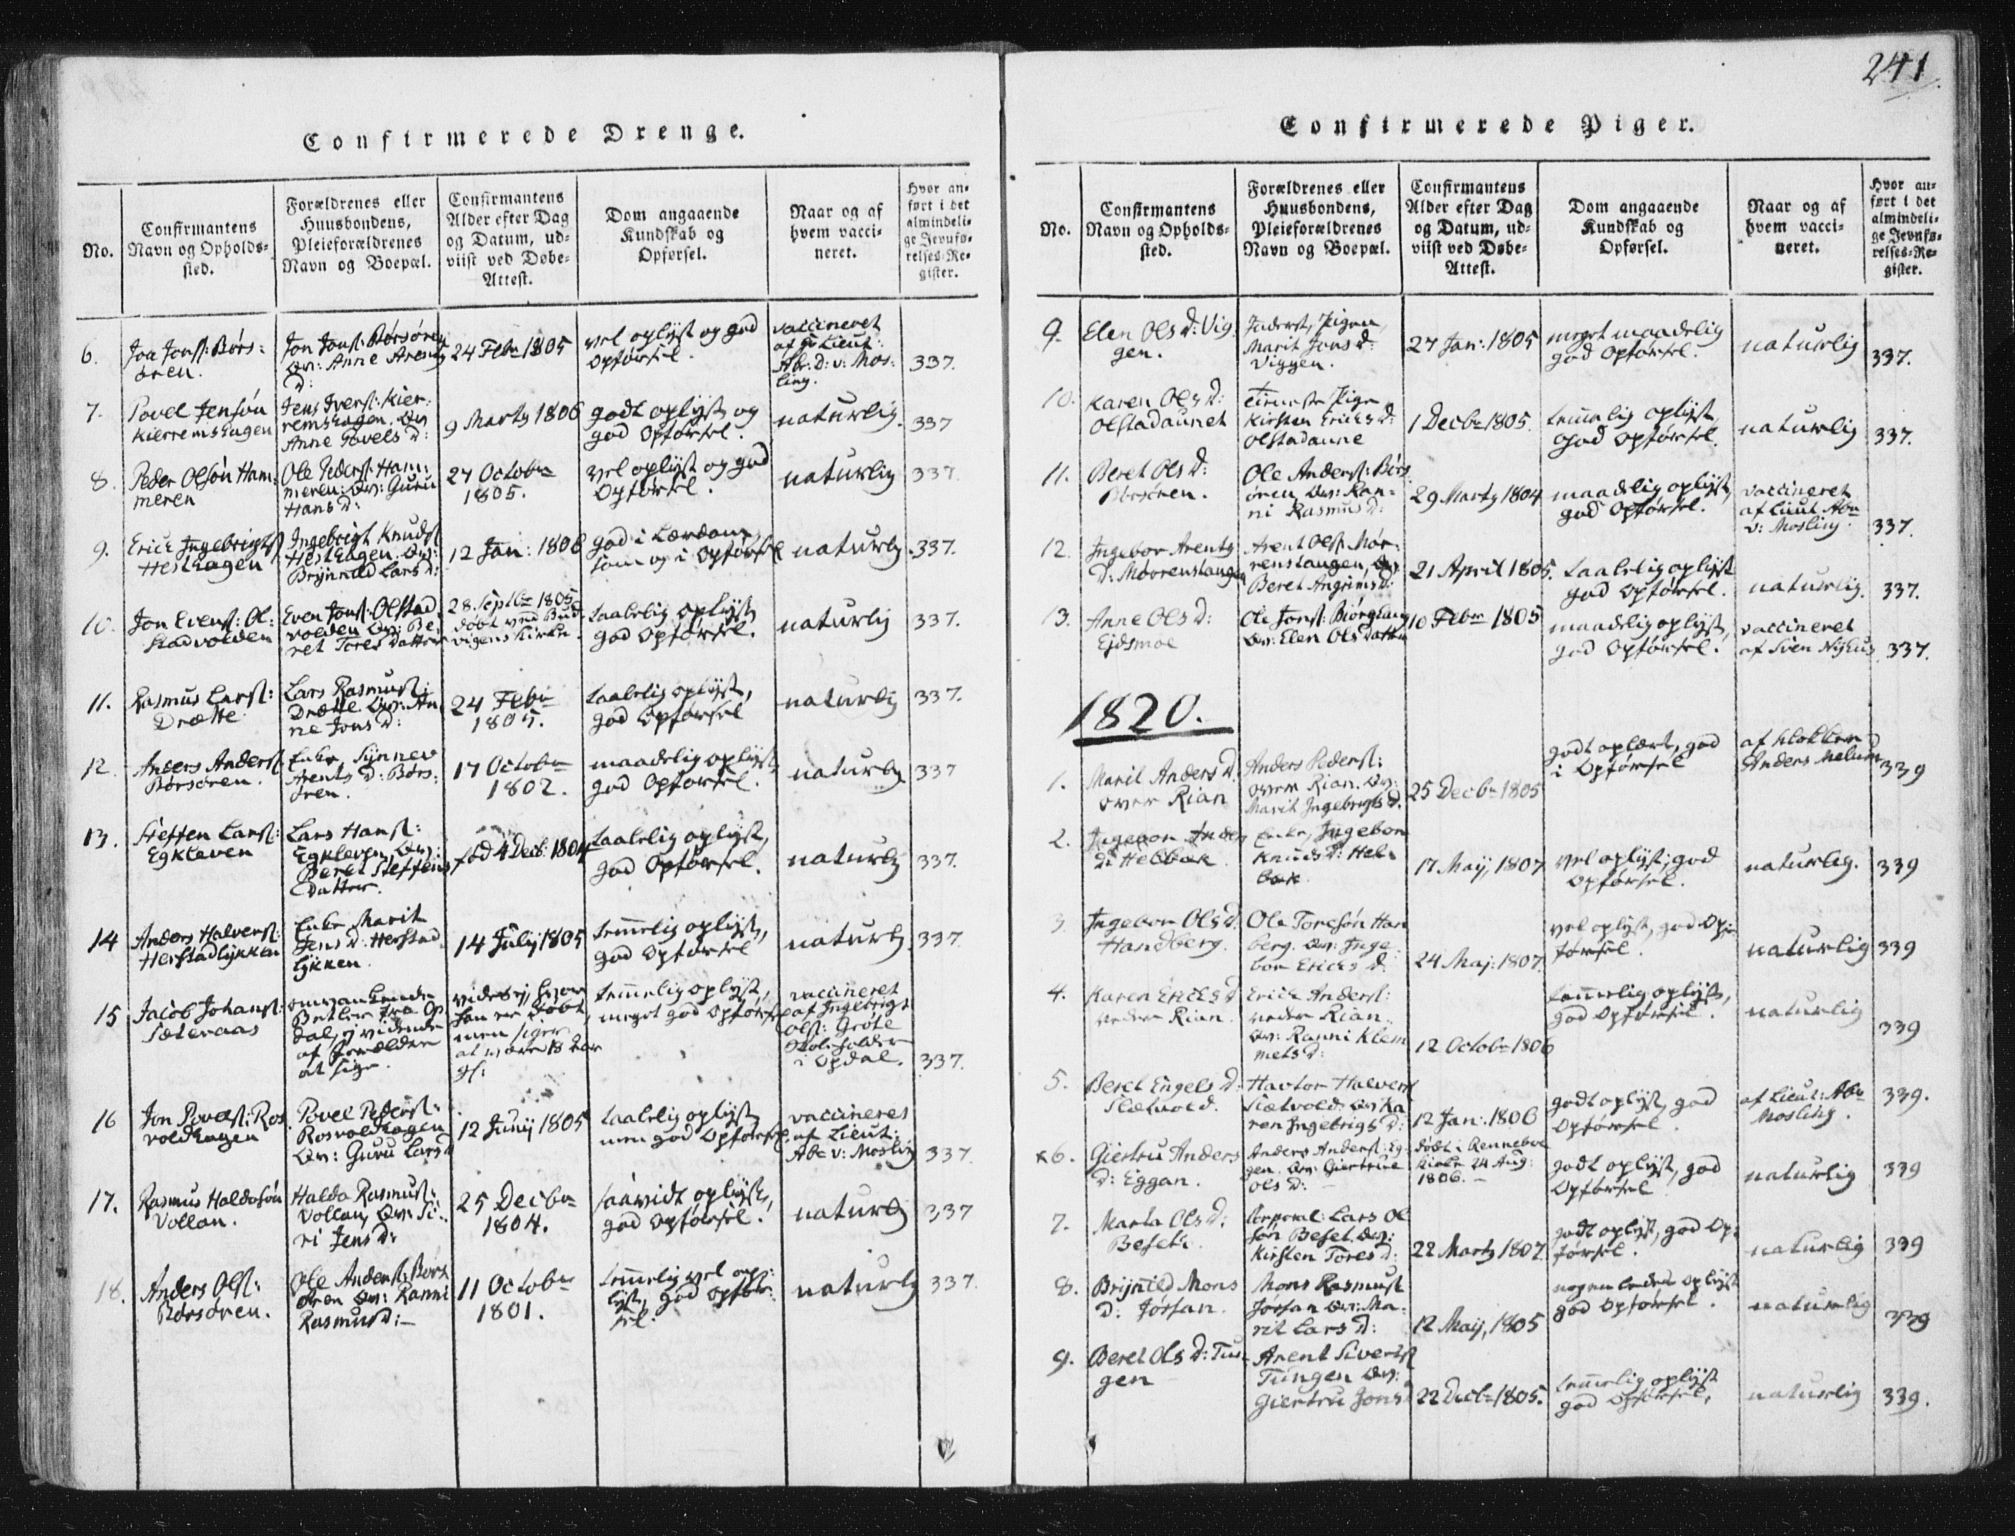 241
Confirmerede Drenge.
No.
Confirmantens
Navn og Opholds-
sted.
Forældrenes eller
Huusbondens,
Pleieforældrenes
Navn og Boepæl.
Confirmantens
Alder efter Dag
og Datum, ud-
viist ved Døbe-
Attest.
Dom angaaende
Kundskab og
Opførsel.
Naar og af
hvem vacci-
neret.
Hvor an-
ført i det
almindeli-
ge Jevnfø-
relses-Re-
gister.
6.
Joa Jonss: Børs:
ören.
Jon Jonss: Børsören
Qv: Anne Arents
D:
24 Febr 1805
vel oplyst og god
Opførsel.
vaccineret
af Lieut:
Abr: D: v: Mos-
ling.
337.
7.
Povel Jensøn
Kierremshagen
Jens Iverss: Kier-
remshagen. Qv
Anne Povels D:
9 Marty 1806
godt oplyst, og
god Opførsel.
naturlig
337
8.
Peder Olsøn Ham-
meren
Ole Pederss: Ham:
meren: Qv: Guru
Hans D:
27 Octobr
1805.
vel oplyst og god
Opførsel.
naturlig
337
9.
Erich Ingebrigtss
Hesthagen
Ingebrigt Knudss
Hesthagen Qv:
Brynild Lars D:
12 Jan: 1806
god i Lærdom
som og i Opførsel
naturlg
337.
10.
Jon Evenss: Ol-
stadvolden
Even Jonss: Olstad
volden Qv: Be-
ret Tores Datter
28 Septbr 1805
döbt ved Bud-
vigens Kirke.
Taalelig oplyst,
god Opførsel.
naturlig
337.
11.
Rasmus Larss:
Drætte
Lars Rasmuss:
Drætte Qv: An-
ne Jons D:
24 Febr
1805.
taalelig oplyst,
god Opførsel
naturlig
337.
12.
Anders Anderss
Börsören.
Enke, Synnev
Arents D: Børs-
ören.
17 Octobr
1802.
maadelig oplyst,
god Opførsel.
naturlg
337
13.
Steffen Larss:
Egkleven
Lars Hanss:
Egkleven, Qv:
Beret Steffens
Datter.
fød 4 Decb: 1804
taalelig oplyst,
god Opførsel.
naturlg
337.
14
Anders Halverss:
Herstadlykken
Enke Marit
Jens D: Herstad
lykken.
14 July 1805
temmelig oplyst,
god Opførsel
naturlg
337.
15
Jacob Johanss:
Sæteraas
omvankende
Betler fra Op-
dal, ej vidende
af Forældre
at sige.
vides ej hvor
han er døbt
men siger
at være 18 Aar
gl:
temmelig oplyst,
meget god Opførsel
vaccineret
af Ingebrigt
Olss: Gröte
Skoleholder
i Opdal.
337.
16
Jon Povelss: Ros-
voldhagen
Povel Pederss:
Rosvoldhagen
Qv: Guru Lars D
12 Juny 1805
taalelig oplyst
men god Opførsel
vaccineret
af Lieut:
Abr v: Mosling
337.
17.
Rasmus Haldosøn
Vollan.
Haldo Rasmuss:
Vollan, Qv: Si-
ri Jens D:
25 Decbr
1804.
saavidt oplyst,
god Opførsel.
naturlg
337
18.
Anders Olss:
Börsören.
Ole Anderss: Börs
ören Qv: Ranni
Rasmus D:
11 Octobr
1801.
temmelig vel op-
lyst, god Opfør-
sel.
naturlg
337.
Confirmerede Piger.
No.
Confirmantens
Navn og Opholds-
sted.
Forældrenes eller
Huusbondens,
Pleieforældrenes
Navn og Boepæl.
Confirmantens
Alder efter Dag
og Datum, ud-
viist ved Døbe-
Attest.
Dom angaaende
Kundskab og
Opførsel.
Naar og af
hvem vacci-
neret.
Hvor an-
ført i det
almindeli-
ge Jevnfø-
relses-Re-
gister.
9.
Elen Ols D: Vig-
gen.
Inderst, Pigen
Marit Jons D:
Viggen.
27 Jan: 1805
meget maadelig
god Opførsel.
naturlig
337.
10.
Karen Ols D:
Olstadaunet
Pige
Kirsten Erichs D:
Olstadaune
1 Decbr 1805.
temmelig oplyst,
god Opførsel.
naturlig
337.
11.
Beret Ols D:
Börsören.
Ole Anderss: Börs
ören, Qv: Ran-
ni Rasmus D:
29 Marty 1804
maadelig oplyst,
god Opførsel.
vaccineret
af Lieut Abr
v: Mosling.
337.
12.
Ingebor Arents
D: Morrenstangen
Arent Olss: Mor-
renstangen, Qv
Beret Angrims D:
21 April 1805.
taalelig oplyst
god Opførsel.
naturlig.
337.
13.
Anne Ols D:
Ejdsmoe
Ole Jonss: Biörgetang
Qv: Elen Ols Datter
10 Febr 1805
maadlig oplyst,
god Opførsel.
vaccineret
af Sven Nyhus
337.
1820.
1.
Marit Anders D.
over Rian
Anders Pederss:
overm Rian. Qv:
Marit Ingebrigts D.
25 Decbr 1805
godt oplært, god
i Opførsel
af Klokker
Anders Melum
339
2.
Ingebor Anders
D: Helbæk
Enke, Ingebor
Knuds D: Hel-
bæk.
17 May, 1807
vel oplyst, god
Opførsel.
naturlig.
339
3.
Ingebor Ols D.
Handberg.
Ole Toresøn Han
berg. Qv: Inge-
bor Erichs D.
24 Maj: 1807.
vel oplyst, god Op-
førsel.
naturlig
339
4.
Karen Erichs D
neder Rian.
Erich Anderss:
neder Rian.
Qv: Ranni Klem
mets D:
12 Octobr 1806
temmelig oplyst,
god Opførsel.
naturlig
339
5.
Beret Engels D:
Slætvold.
Havtor Halverss
Slætvold. Qv: Ka
ren Ingebrigts D:
12 Jan: 1806
godt oplyst, god
Opførsel.
af Lieut: Abr
Mosling.
339.
x6.
Giertru Anders
D: Eggan.
Anders Anderss: Eg-
gen. Qv: Giertrue
Ols D:
döbt i Rennebue
Kirke 24 Aug:
1806.
godt oplyst, god
Opførsel
naturlig
339
7.
Marta Ols D:
Beseth.
Corporal: Lars Ol
søn Beset. Qv:
Kirsten Tores D:
22 Marty 1807.
godt oplyst, god Op-
førsel.
naturlig
339
8.
Brynild Mons
D: Jörfan.
Mons Rasmuss
Jörfan Qv: Ma-
rit Lars D:
12 May, 1805
nogenledes oplyst
god Opførsel.
naturlig
339
9.
Beret Ols D: Tun-
gen
Arent Sivertss
Tungen Qv:
Giertru Jons D
22 Decbr 1805.
temmelig oplyst
god Opførsel,
naturlig
339.